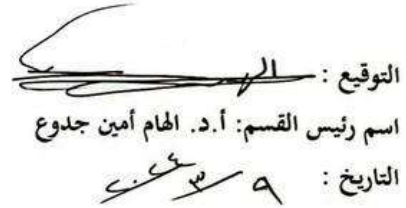 التوقيع :
اسم رئيس القسم: أ.د. الهام أمين جدوع
التاريخ : ٩ / ٣ / ٢٠٢٤